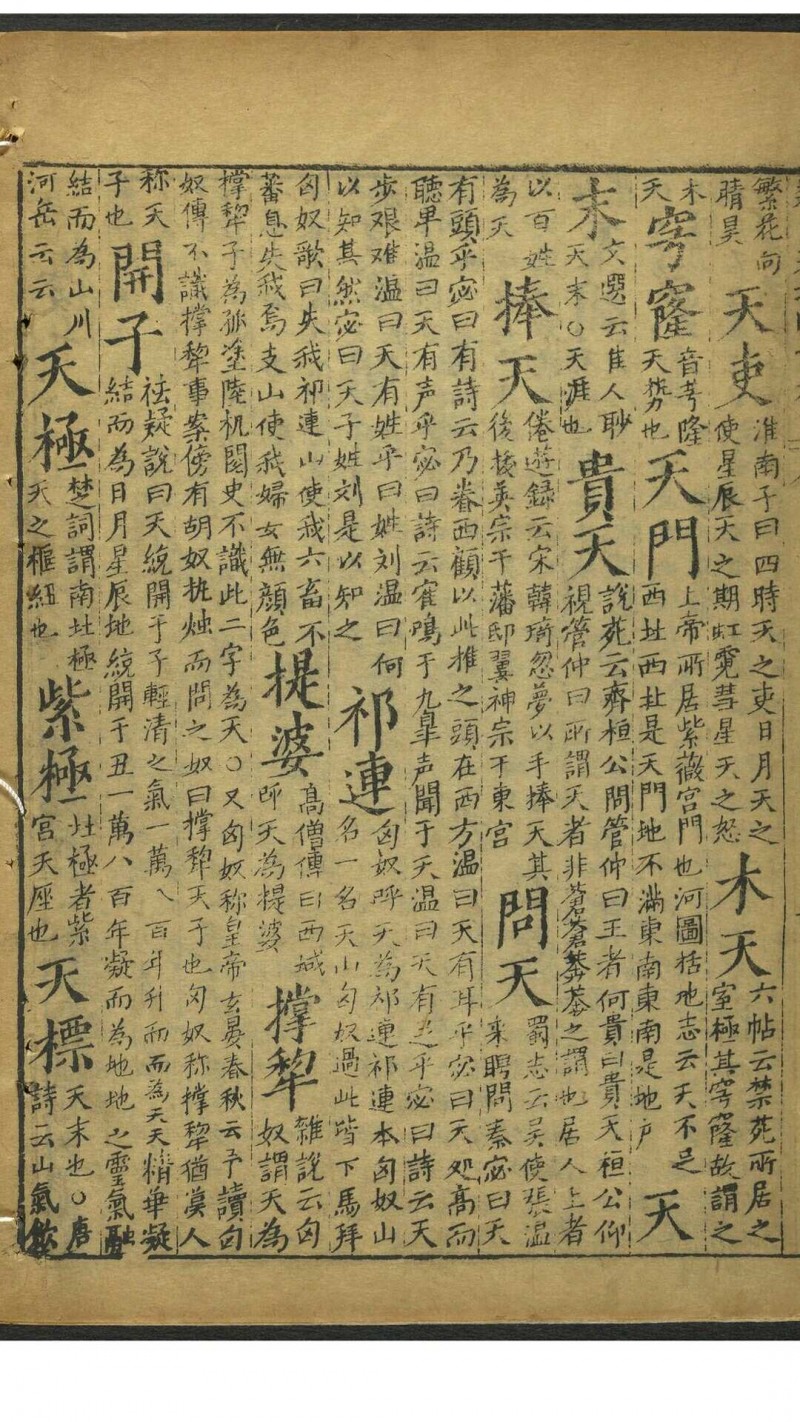 繁花向
晴昊
天吏
淮南子曰四時天之吏日月天之
使星辰天之期虹霓彗星天之怒
木天
六帖云禁苑所居之
室極其穹窿故謂之
木
天
穹窿
音芎隆
天势也
天門
上帝所居紫薇宮門也河圖括地志云天不足
西北西北是天門地不滿東南東南是地户
天
末
文選云隹人眇
天末○天涯也
貴天
說苑云齊桓公問管仲曰王者何貴曰貴天桓公仰
視管仲曰所謂天者非蒼蒼莽莽之謂也居人上者
以百姓
為天
捧天
倦遊録云宋韓琦忽夢以手捧天其
後援英宗于藩邸翼神宗于東宮
問天
蜀志云吳使張温
来聘問秦宓曰天
有頭乎宓曰有詩云乃眷西顧以此推之頭在西方温曰天有耳乎宓曰天処高而
聽卑温曰天有声乎宓曰詩云寉鳴于九皐声聞于天温曰天有足乎宓曰詩云天
步艰难温曰天有姓乎曰姓刘温曰何
以知其然宓曰天子姓刘是以知之
祁連
匈奴呼天為祁連祁連本匈奴山
名一名天山匈奴過此皆下馬拜
匈奴歌曰失我祁連山使我六畜不
蕃息失我焉支山使我婦女無顔色
提婆
高僧傳曰西域
呼天為提婆
撑犂
雜說云匈
奴謂天為
撑犂子為孤塗陸机閱史不識此二字為天○又匈奴称皇帝玄晏春秋云予讀匈
奴傳不識撑犂事案傍有胡奴执烛而問之奴曰撑犂天子也匈奴称撑犂猶漢人
称天
子也
開子
祛疑說曰天統開于子輕清之氣一萬八百年升而為天天精華凝
結而為日月星辰地統開于丑一萬八百年凝而為地地之靈氣融
結而為山川
河岳云云
天極
楚詞謂南北極
天之樞紐也
紫極
北極者紫
宮天座也
天標
天末也○唐
詩云山氣欲